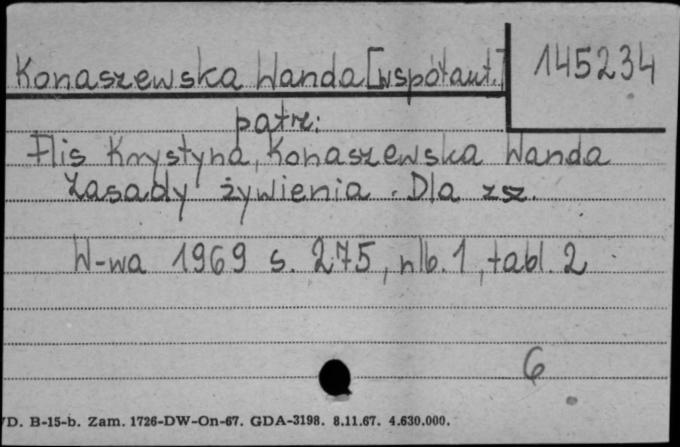 Konaszewska Wanda [współaut.] 145234
patrz:
Flis Krystyna, Konaszewska Wanda
Zasady żywienia. Dla zsz.
W-wa 1969 s. 275, nlb. 1, tabl. 2
6
D. B-15-b. Zam. 1726-DW-On-67. GDA-3198. 8.11.67. 4.630.000.